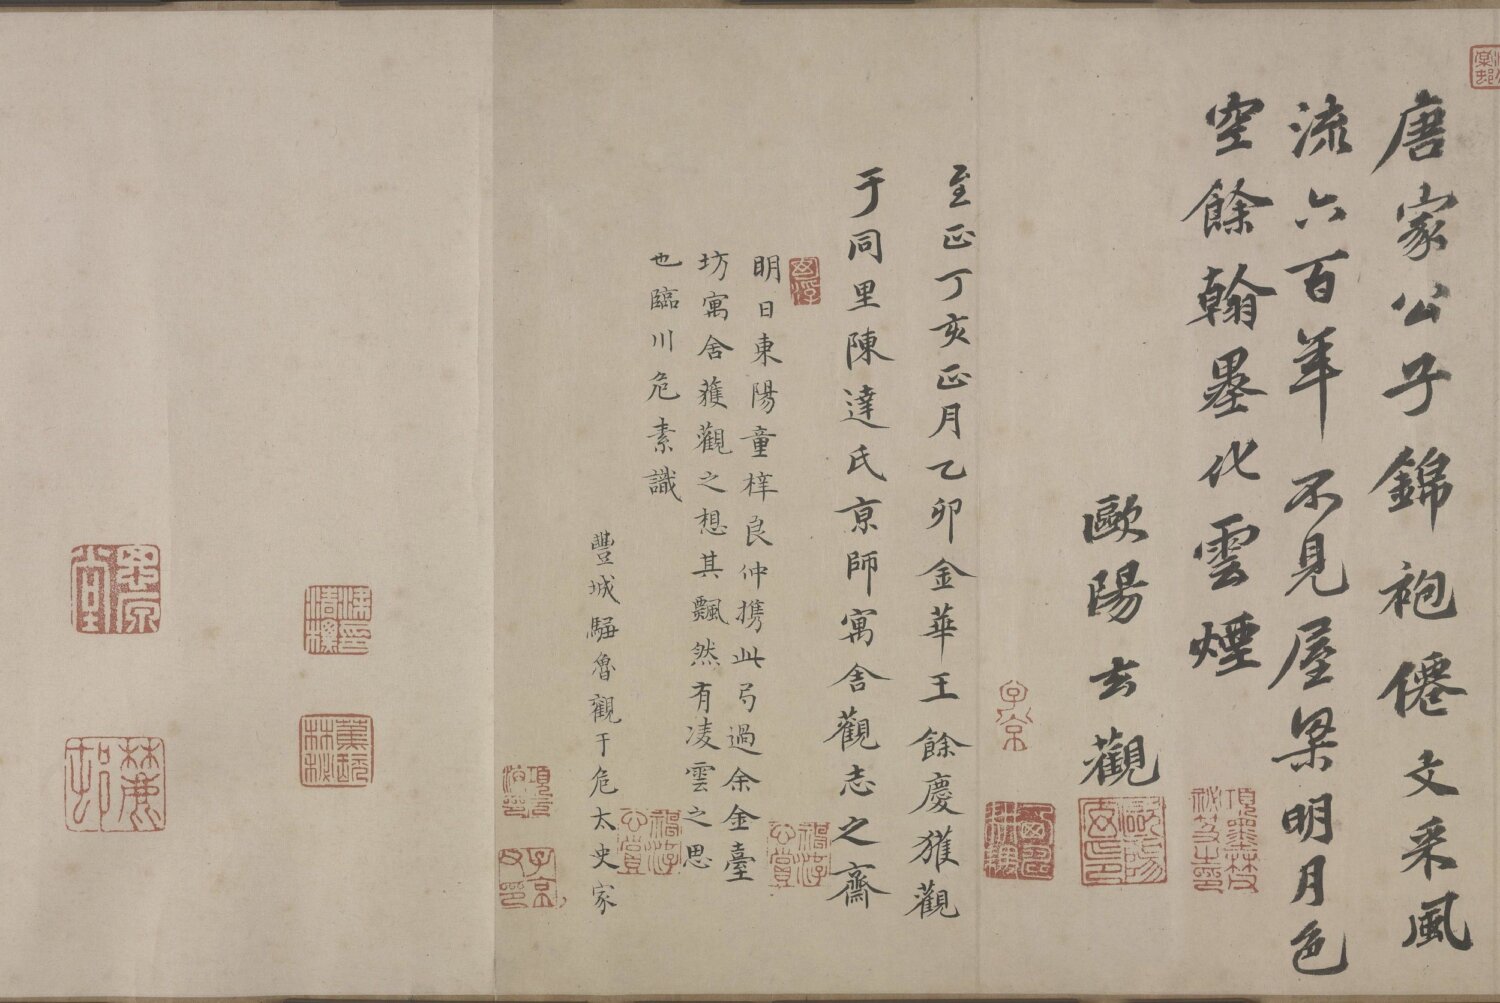 唐家公子錦袍僊文采風
流六百年不見屋梁明月色
空餘翰墨化雲煙
歐陽玄觀
至正丁亥正月乙卯金華王餘慶獲觀
于同里陳達氏京師寓舍觀志之齋
明日東陽童梓良仲携此弓過余金臺
坊寓舍獲觀之想其飄然有凌雲之思
也臨川危素識
豐城騶魯觀于危太史家
子京